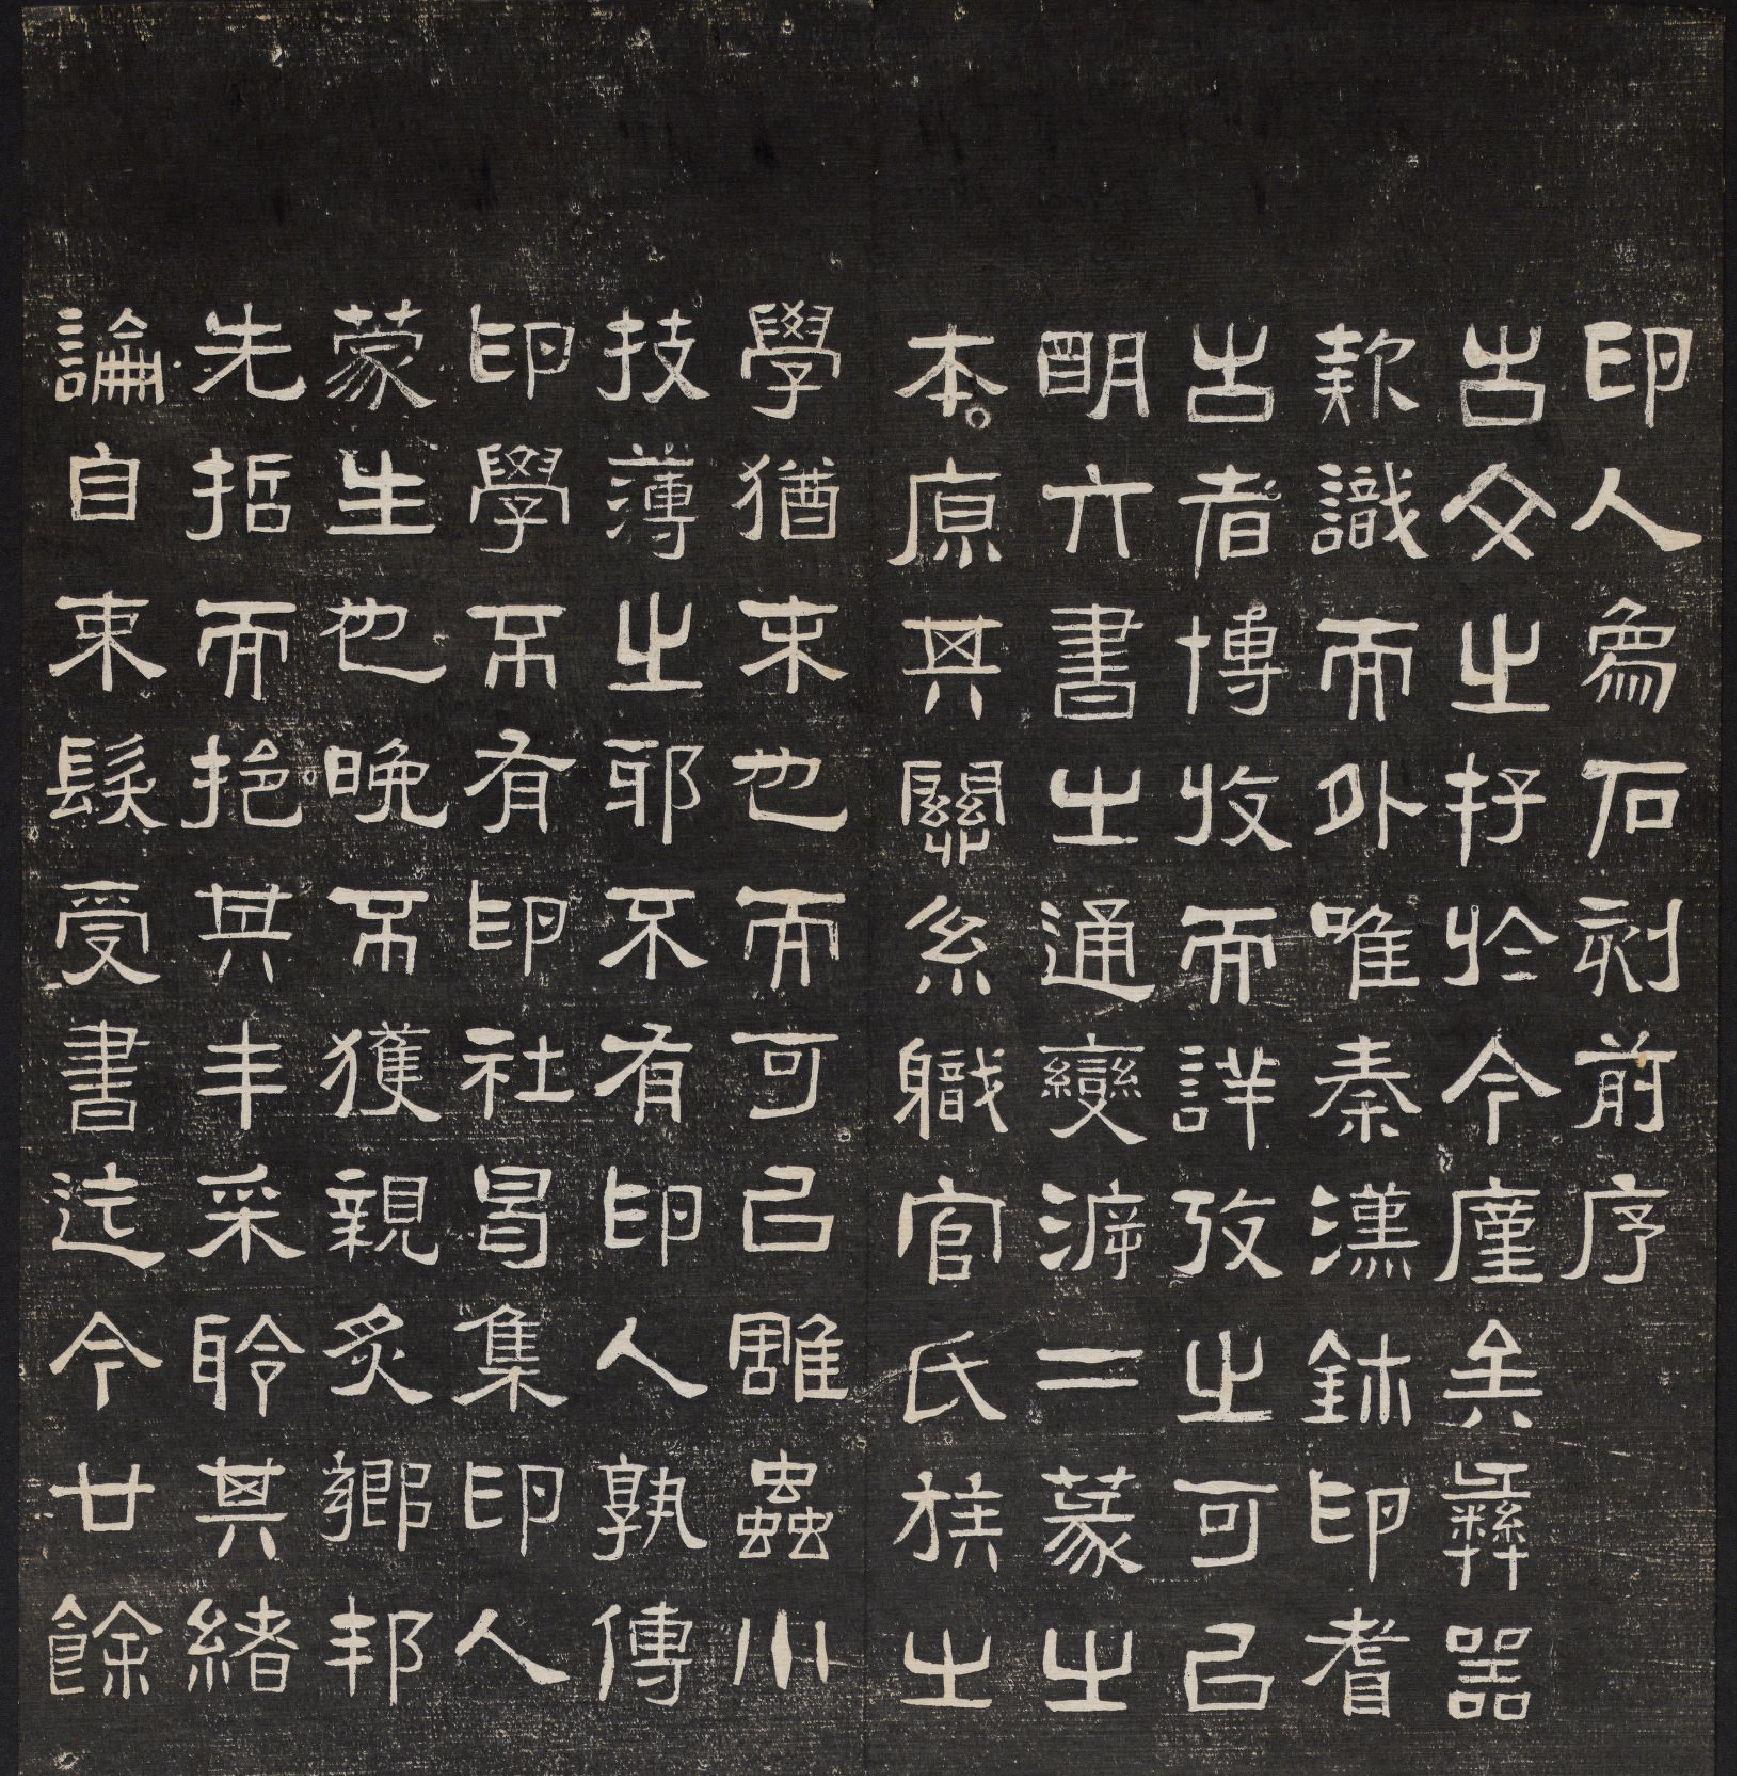 印人爲石刻前序
古文之存於今廑矣彝器
款識而外唯秦漢鉥印耆
古者博收而詳攷之可㠯
明六書之通變㴑二篆之
本原其關系職官氏族之
學猶末也而可㠯雕蟲小
技薄之耶不有印人孰傳
印學不有印社曷集印人
蒙生也晚不獲親炙鄉邦
先哲而挹其丰采聆其緒
論自束髮受書迄今廿餘